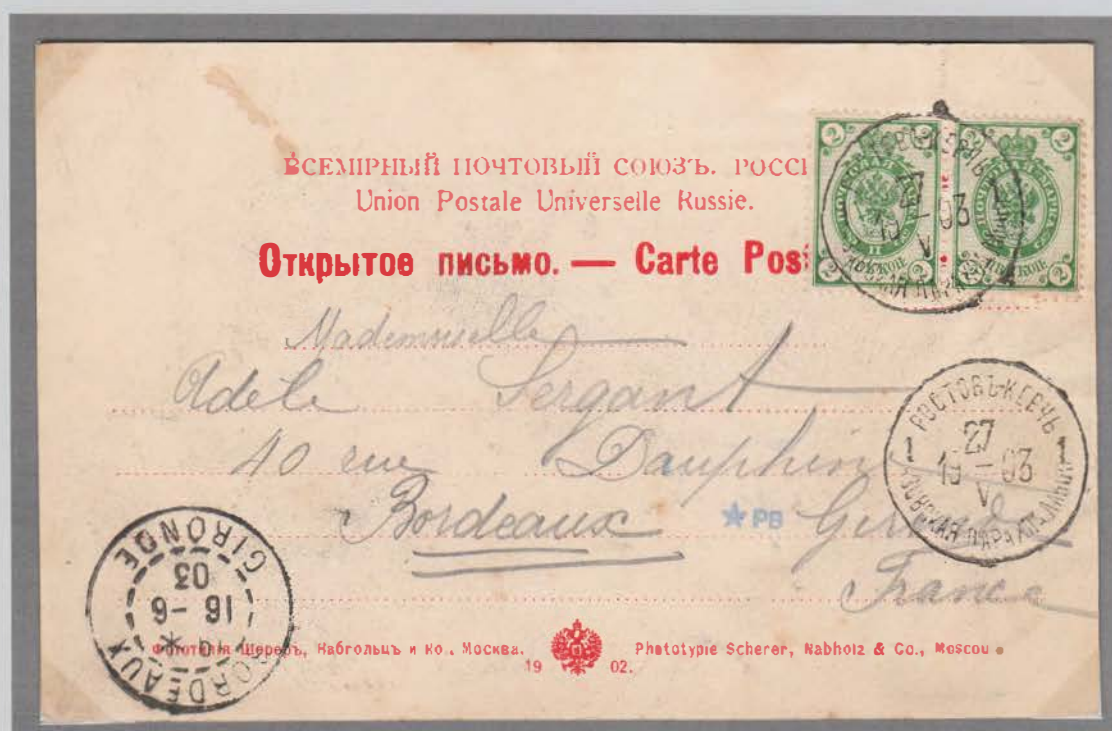 ВСЕМІРНЫЙ ПОЧТОВЫЙ СОЮЗЪ. РОССІ
Union Postale Universelle Russie.
Открытое письмо. — Carte Pos
2 2
2 2
27
19 – 03
V
Mademoiselle
Adèle Sergant
40 rue Dauphine
Bordeaux Gironde
France
РОСТОВЪ-КЕРЧЬ
1 27 1
19 – 03
V
★ РВ
BORDEAUX
GIRONDE
16 – 6
03
Фототипія Шереръ, Набгольцъ и Ко., Москва. 1902. Phototypie Scherer, Nabholz & Co., Moscou